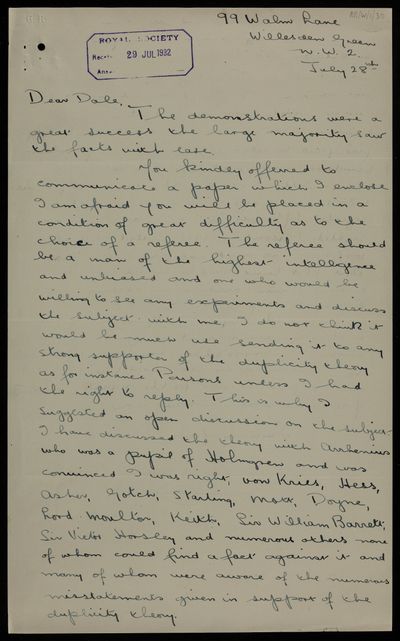 99 Walm Lane
Willesden Green
N.W. 2.
July 28th
ROYAL SOCIETY
Rece 29 JUL 1932
Ans
Dear Dale,
The demonstrations were a
great success the large majority saw
the facts with ease.
You kindly offered to
communicate a paper which I enclose
I am afraid you will be placed in a
condition of great difficulty as to the
choice of a referee. The referee should
be a man of the highest intelligence
and unbiased and one who would be
willing to see any experiments and discuss
the subject with me. I do not think it
would be much use sending it to any
strong supporter of the duplicity theory
as for instance Parsons unless I had
the right to reply. This is why I
suggested an open discussion on the subject.
I have discussed the theory with Arrhenius
who was a pupil of Holmgren and was
convinced I was right, von Kries, Hess,
Asher, Gotch, Starling, Mott, Doyne,
Lord Moulton, Keith, Sir William Barrett,
Sir Victor Horsley and numerous others none
of whom could find a fact against it and
many of whom were aware of the numerous
misstatements given in support of the
duplicity theory.